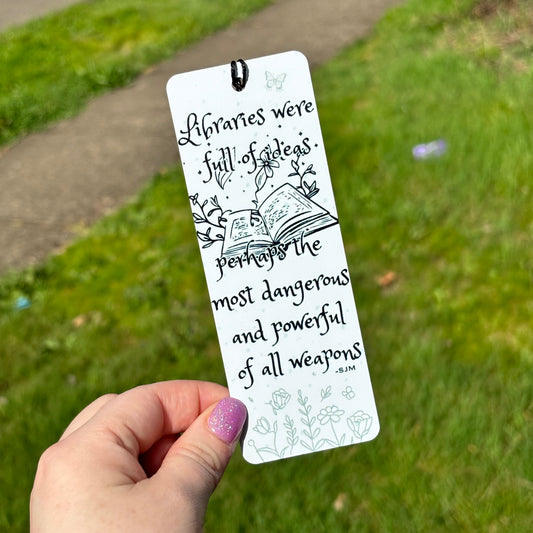 Libraries were
full of ideas
perhaps the
most dangerous
and powerful
of all weapons
-SJM